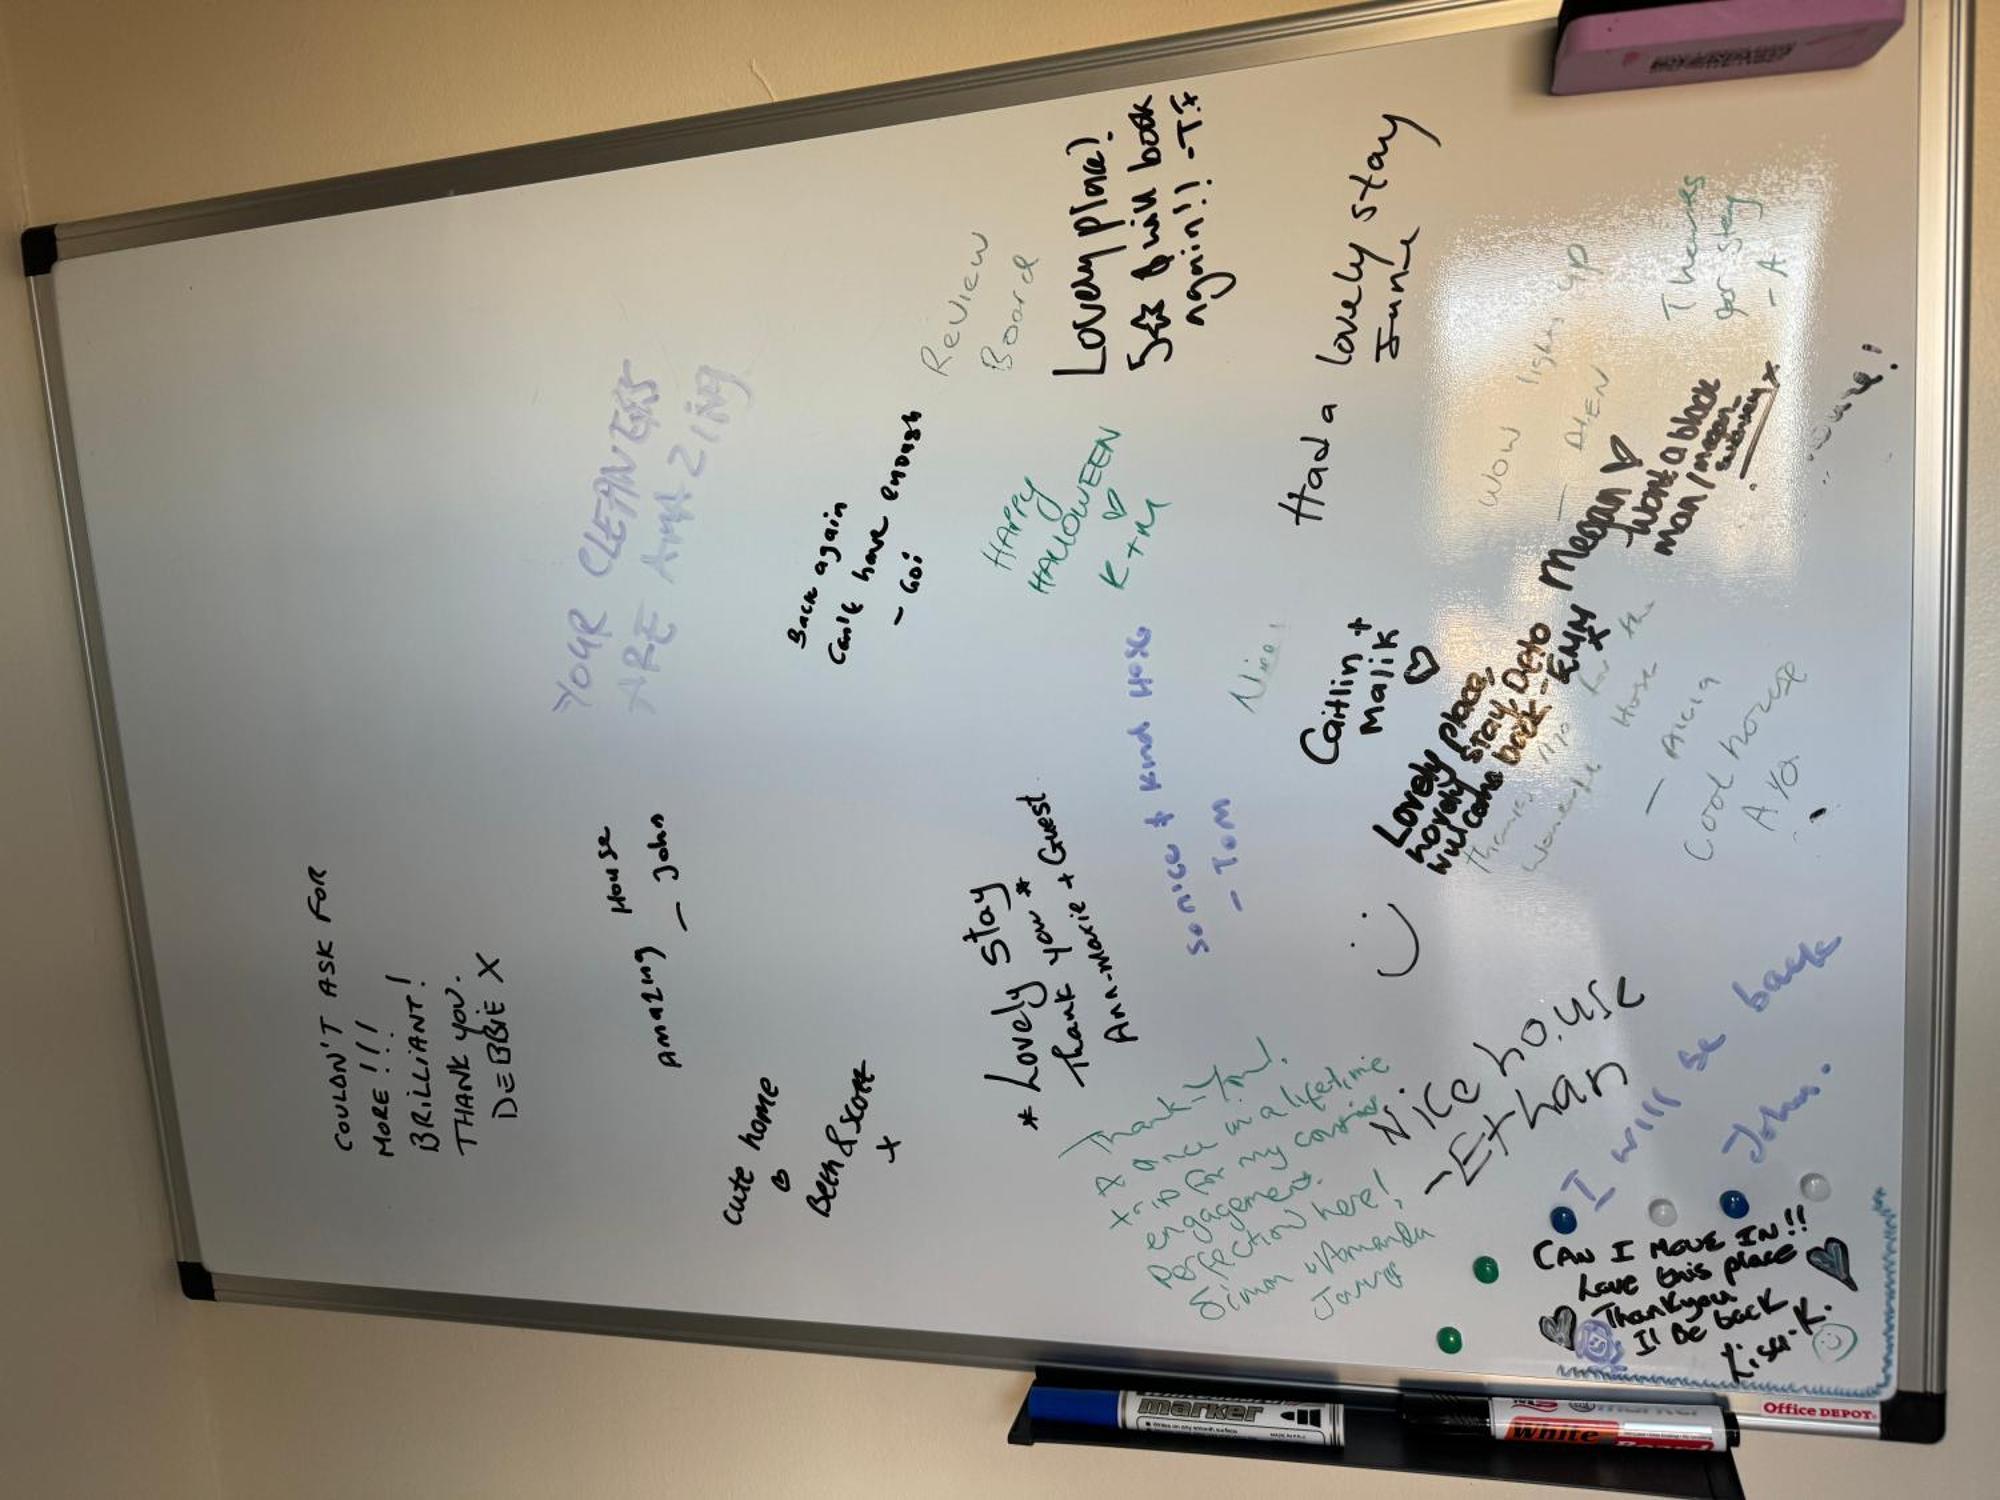 COULDN'T ASK FOR
MORE!!!
BRILLIANT!
THANK YOU.
DEBBIE X
YOUR CLEANERS
ARE AMAZING
Amazing House
- John
Cute home
Beth & Scott
x
Back again
Can't have enough
- Goi
Review
Board
Lovely place!
5☆☆ & will book
again!! -T.F x
HAPPY
HALLOWEEN
♡
K + M
* Lovely stay
Thank you *
Ann-Marie + Guest
so nice & kind Host
- Tom
Thank-You!
A once in a lifetime
trip for my
engagement.
Perfection here!
Simon & Amanda
Had a lovely stay
June
Nice!
Caitlin +
Malik
♡
Lovely place,
lovely stay,
will come back -
EMM
x
Megan ♡
Want a black
man / megan
x
Wow lights up
- ALEN
Thanks
for stay
- A
for the
House
- Alicia
Cool house
Aya
Nice house
- Ethan
I will be back
John.
CAN I MOVE IN!!
Love this place
Thankyou
I'l Be back
Lisa.K.
marker
White
Board
Office DEPOT